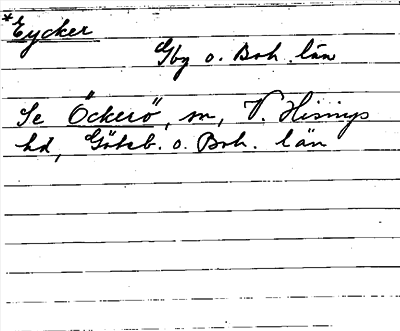 *Eycker
Gbg o. Boh. län
Se Öckerö, sn, V. Hisings
hd, Göteb. o. Boh. län